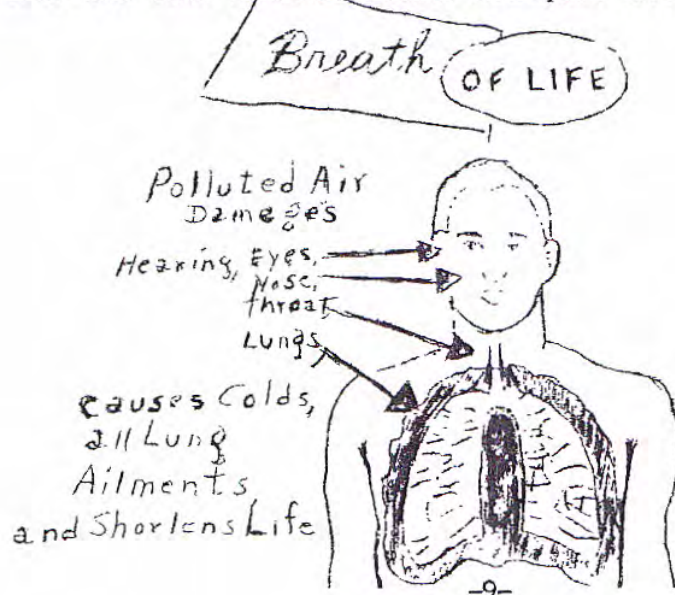 Breath
OF LIFE
Polluted Air
Damages
Hearing, Eyes,
Nose,
throat,
Lungs,
causes Colds,
all Lung
Ailments,
and Shortens Life
-9-